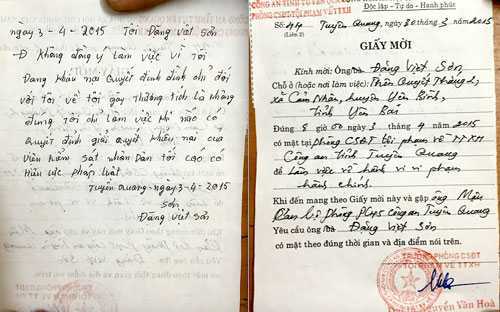 ngày 3-4-2015 Tôi Đặng Việt Sơn
Không đồng ý làm việc vì tôi
Đang khiếu nại Quyết định đình chỉ đối
với tôi về tội gây thương tích là không
đúng tôi chỉ làm việc khi nào có
Quyết định giải quyết khiếu nại của
Viện kiểm sát nhân Dân tối cao có
Hiệu lực pháp luật
Tuyên Quang ngày 3-4-2015
Sơn
Đặng Việt Sơn
CÔNG AN TỈNH TUYÊN QUANG
PHÒNG CSĐT TỘI PHẠM VỀ TTXH
Độc lập - Tự do - Hạnh phúc
Số: 44 Tuyên Quang, ngày 30 tháng 3 năm 2015
(Liên 2)
GIẤY MỜI
Kính mời: Ông/bà Đặng Việt Sơn
Chỗ ở (hoặc nơi làm việc): Thôn Quyết Thắng 2,
xã Cảm Nhân, huyện Yên Bình,
tỉnh Yên Bái
Đúng 8 giờ 00 ngày 3 tháng 4 năm 2015
có mặt tại Phòng CSĐT tội phạm về TTXH
Công an tỉnh Tuyên Quang
để Làm việc về hành vi vi phạm
hành chính.
Khi đến mang theo Giấy mời này và gặp ông Mận
Cán bộ phòng PC45 Công an Tuyên Quang
Yêu cầu ông/bà Đặng Việt Sơn
có mặt theo đúng thời gian và địa điểm nói trên.
TRƯỞNG PHÒNG CSĐT
TỘI PHẠM VỀ TTXH
Đại tá Nguyễn Văn Hoà